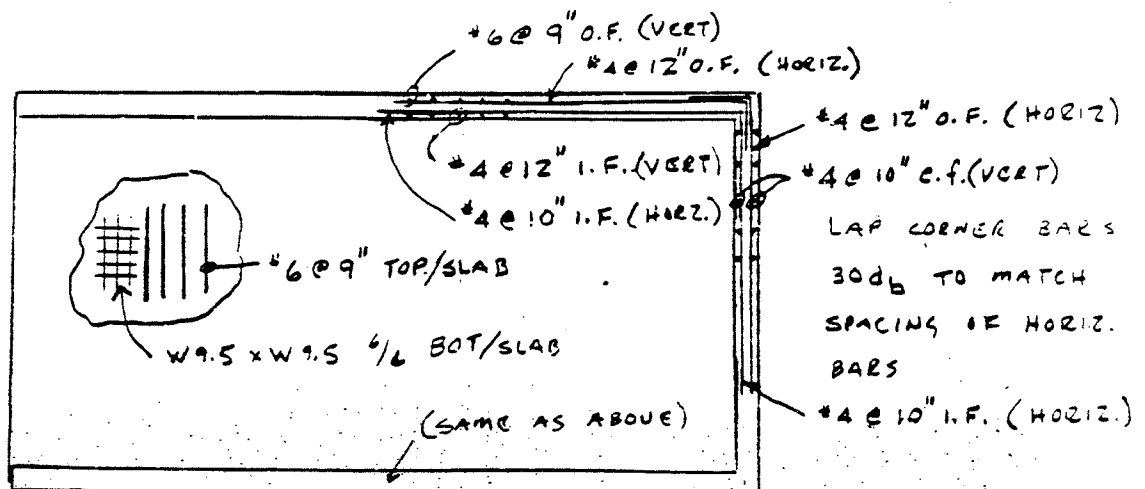 #6 @ 9" O.F. (VERT)
#4 @ 12" O.F. (HORIZ.)
#4 @ 12" O.F. (HORIZ)
#4 @ 12" I.F. (VERT)
#4 @ 10" e.f. (VERT)
#4 @ 10" I.F. (HORZ.)
LAP CORNER BARS
30db TO MATCH
SPACING OF HORIZ.
BARS
#6 @ 9" TOP/SLAB
W9.5 x W9.5 6/6 BOT/SLAB
#4 @ 10" I.F. (HORIZ.)
(SAME AS ABOVE)